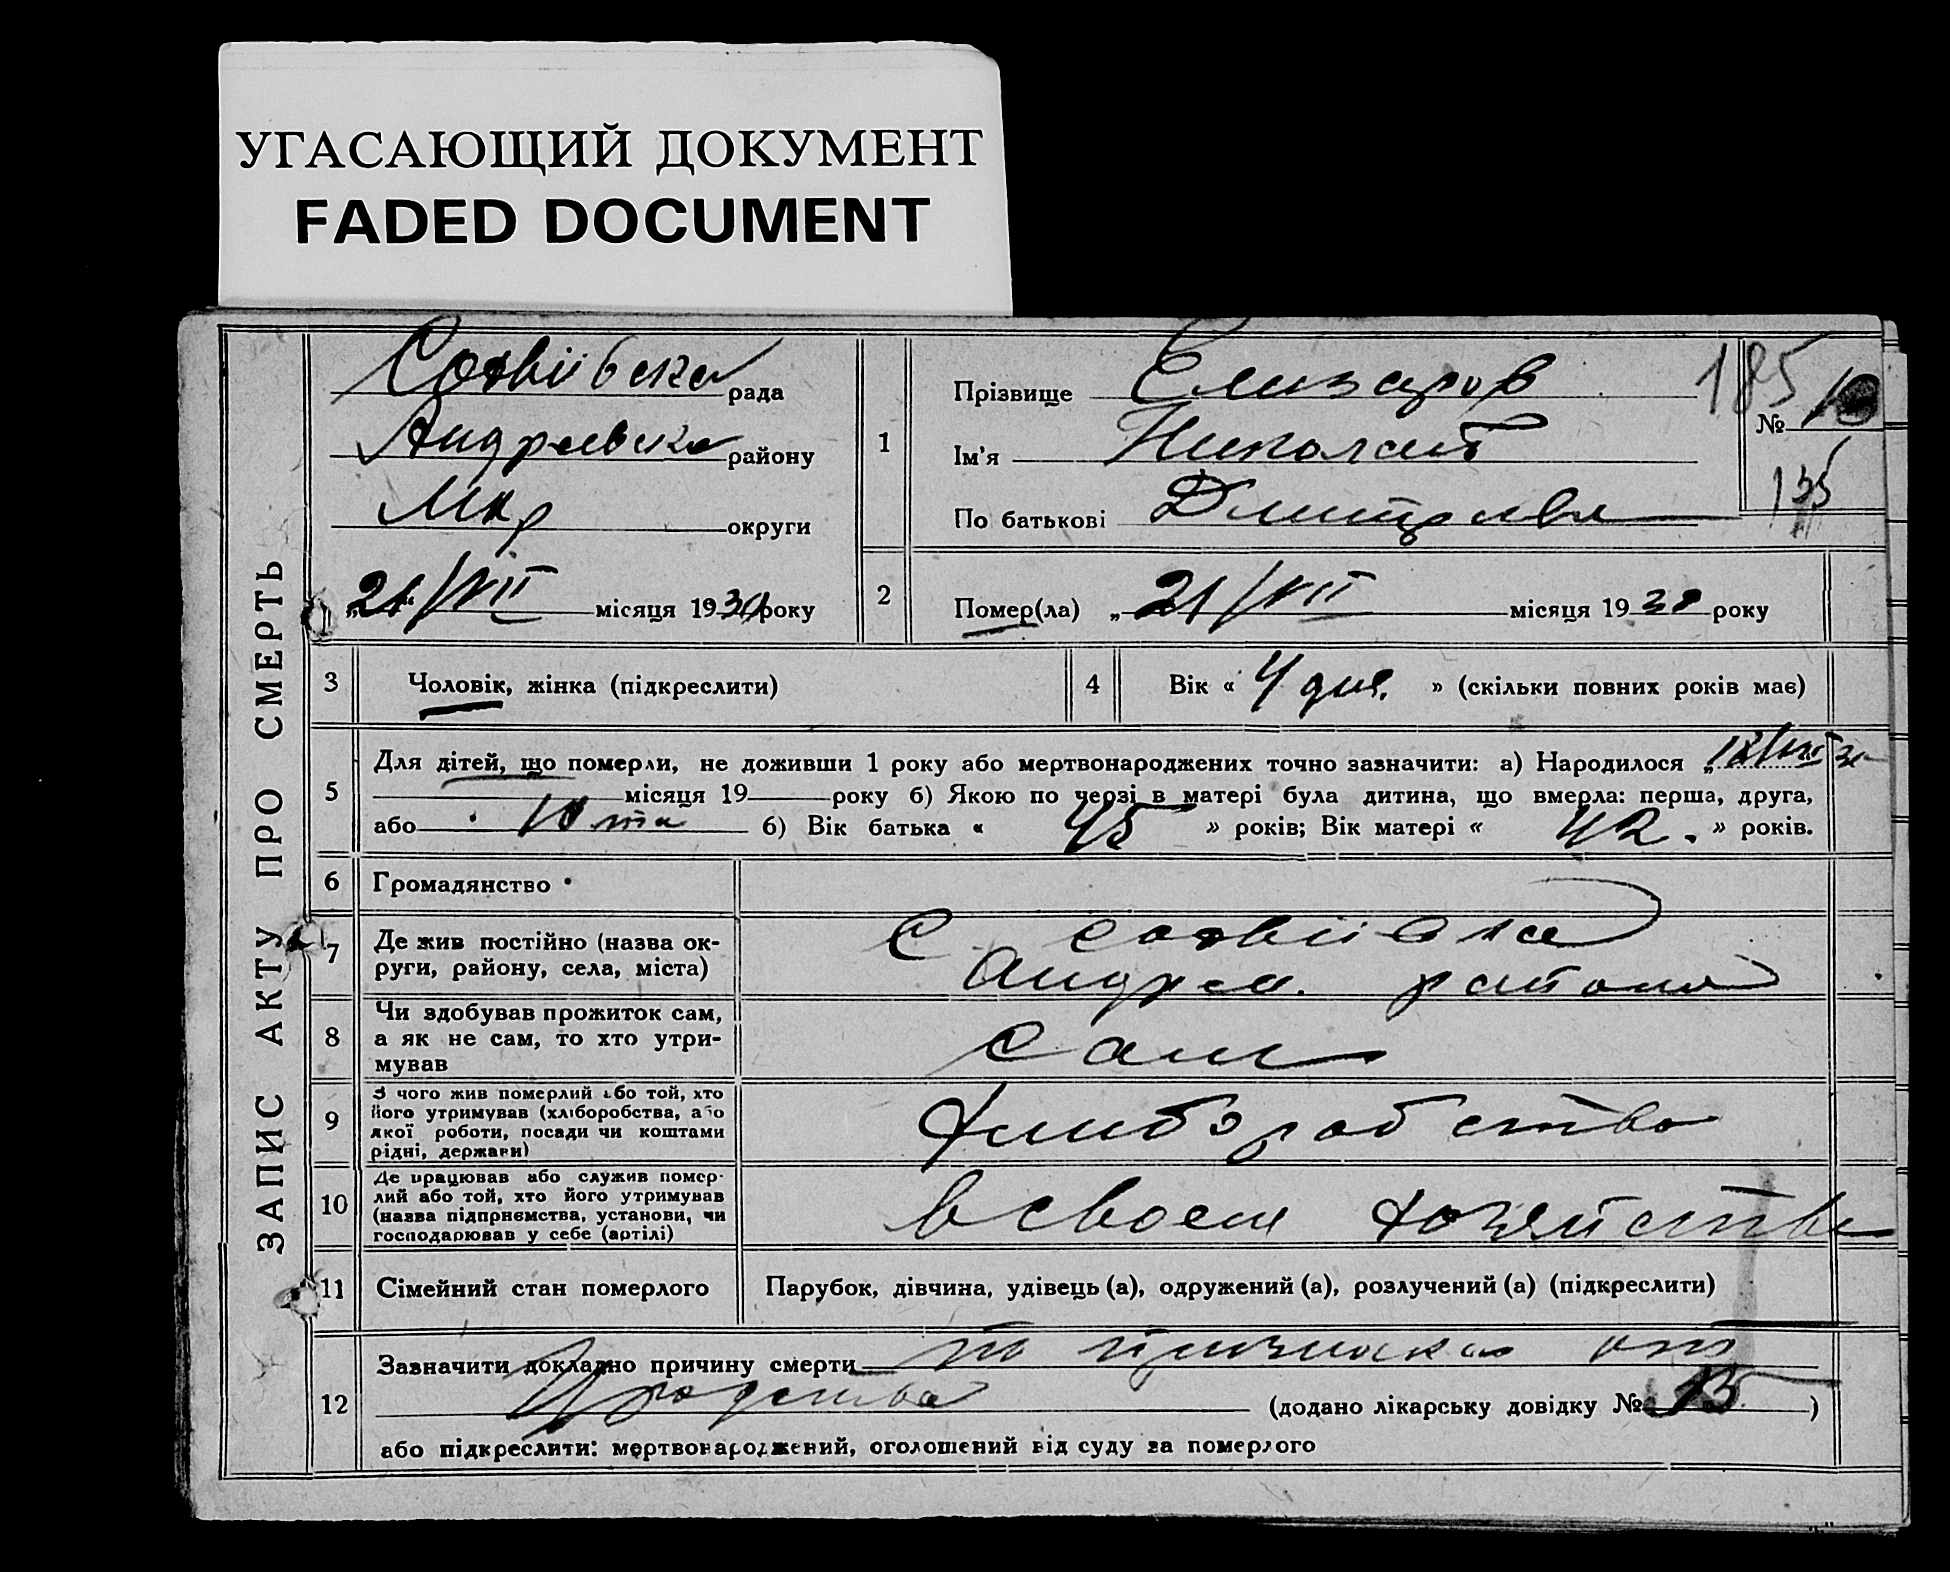 УГАСАЮЩИЙ ДОКУМЕНТ
FADED DOCUMENT
ЗАПИС АКТУ ПРО СМЕРТЬ
рада
Андреевска району
Мкр округи
„21“/VII місяця 1930 року
1
Прізвище Елизаров
Ім'я Николай
По батькові Дмитриев
185
№ 10
135
2
Помер(ла) „21/VII місяця 1930 року
3
Чоловік, жінка (підкреслити)
4
Вік « 4 дня. » (скільки повних років має)
5
Для дітей, що померли, не доживши 1 року або мертвонароджених точно зазначити: а) Народилося „
місяця 19 року б) Якою по черзі в матері була дитина, що вмерла: перша, друга,
або 10 та б) Вік батька « 45 » років; Вік матері « 42. » років.
6
Громадянство
7
Де жив постійно (назва ок-
руги, району, села, міста)
с
Андреев. района
8
Чи здобував прожиток сам,
а як не сам, то хто утри-
мував
Сам
9
З чого жив померлий або той, хто
його утримував (хліборобства, або
якої роботи, посади чи коштами
рідні, держави)
Хлиборобство
10
Де працював або служив помер-
лий або той, хто його утримував
(назва підприємства, установи, чи
господарював у себе (артілі)
в своем хозяйстве
11
Сімейний стан померлого
Парубок, дівчина, удівець (а), одружений (а), розлучений (а) (підкреслити)
12
Зазначити докладно причину смерти по признакам от
(додано лікарську довідку № )
або підкреслити: мертвонароджений, оголошений від суду за померлого